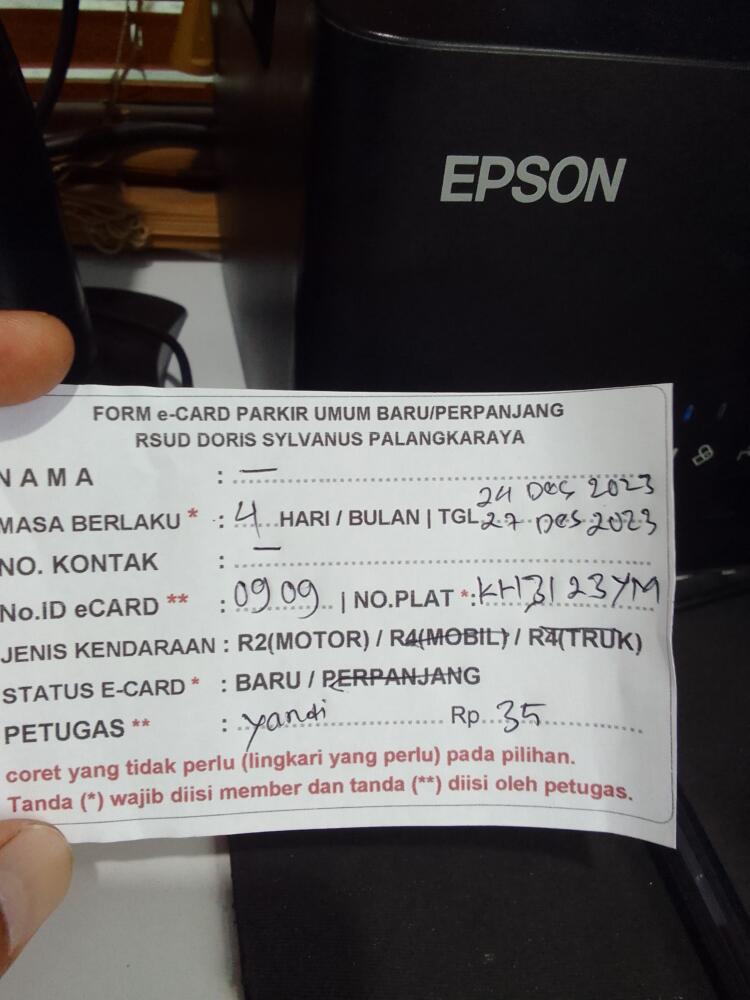 EPSON
FORM e-CARD PARKIR UMUM BARU/PERPANJANG
RSUD DORIS SYLVANUS PALANGKARAYA
NAMA : —
24 Des 2023
MASA BERLAKU * : 4 HARI / BULAN | TGL 27 Des 2023
NO. KONTAK : —
No.ID eCARD ** : 0909 | NO.PLAT *: KH3123YM
JENIS KENDARAAN : R2(MOTOR) / R4(MOBIL) / R4(TRUK)
STATUS E-CARD * : BARU / PERPANJANG
PETUGAS ** : yandi Rp. 35
coret yang tidak perlu (lingkari yang perlu) pada pilihan.
Tanda (*) wajib diisi member dan tanda (**) diisi oleh petugas.